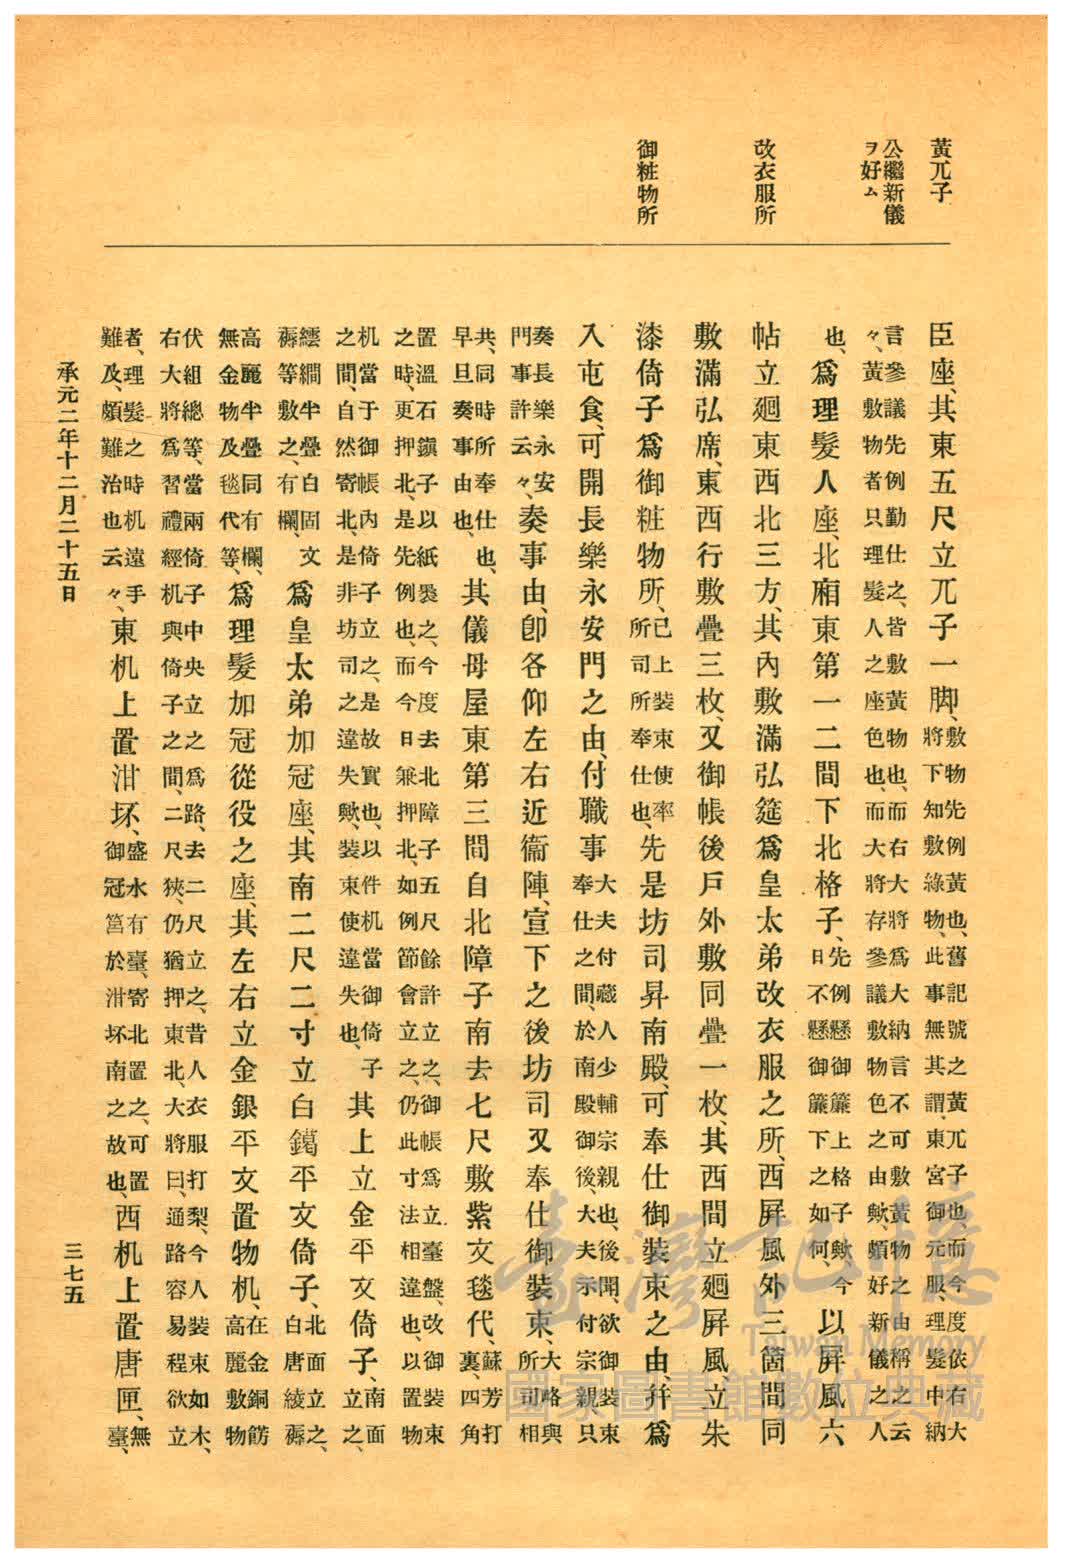 黃兀子
公繼新儀
ヲ好ム
改衣服所
御粧物所
臣座、其東五尺立兀子一脚、敷物先例黃也、舊記號之黃兀子也、而今度依右大將下知敷綠物、此事無其謂、東宮御元服、理髮中納
言參議先例勤仕之、皆敷黃物也、而右大將爲大納言不可敷黃物之由稱之云々、黃敷物者只理髮人之座色也、而大將存參議敷物色之由歟、頗好新儀之人
也、爲理髮人座、北廂東第一二間下北格子、先例懸御簾上格子歟、今日不懸御簾下之如何、以屏風六
帖立廻東西北三方、其內敷滿弘筵爲皇太弟改衣服之所、西屏風外三箇間同
敷滿弘席、東西行敷疊三枚、又御帳後戶外敷同疊一枚、其西間立廻屏風、立朱
漆倚子爲御粧物所、已上裝束使率所司所奉仕也、先是坊司昇南殿、可奉仕御裝束之由、幷爲
入屯食、可開長樂永安門之由、付職事大夫付藏人少輔宗親也、後聞、欲御裝束奉仕之間、於南殿御後、大夫示付宗親、只
奏長樂永安門事許云々、奏事由、卽各仰左右近衞陣、宣下之後坊司又奉仕御裝束、大略與所司相
共、同時所奉仕也、早旦奏事由也、其儀母屋東第三間自北障子南去七尺敷紫文毯代、蘇芳打裏、四角
置溫石鎭子以紙裹之、今度去北障子五尺餘許立之、御帳爲立臺盤、改御裝束之時、更押北、是先例也、而今日兼押北、如例節會立之、仍此寸法相違也、以置物
机當于御帳內倚子立之、是故實也、以件机當御倚子之間、自然寄北、是非坊司之違失歟、裝束使違失也、其上立金平文倚子、南面立之、
繧繝半疊白固文褥等敷之、有欄、爲皇太弟加冠座、其南二尺二寸立白鑞平文倚子、北面立之、白唐綾褥
高麗半疊同有欄、無金物及毯代等、爲理髮加冠從役之座、其左右立金銀平文置物机、在金銅餝高麗敷物
伏組總等、當兩倚子中央立之爲路、去二尺立之、昔人衣服打梨、今人裝束如木、右大將爲習禮經机與倚子之間、二尺狹、仍猶押東北、大將曰、通路容易程欲立
者、理髮之時机遠手難及、頗難治也云々、東机上置泔坏、盛水有臺、寄北置之、可置御冠筥於泔坏南之故也、西机上置唐匣、無臺、
承元二年十二月二十五日
三七五
臺灣記憶
Taiwan Memory
國家圖書館數位典藏